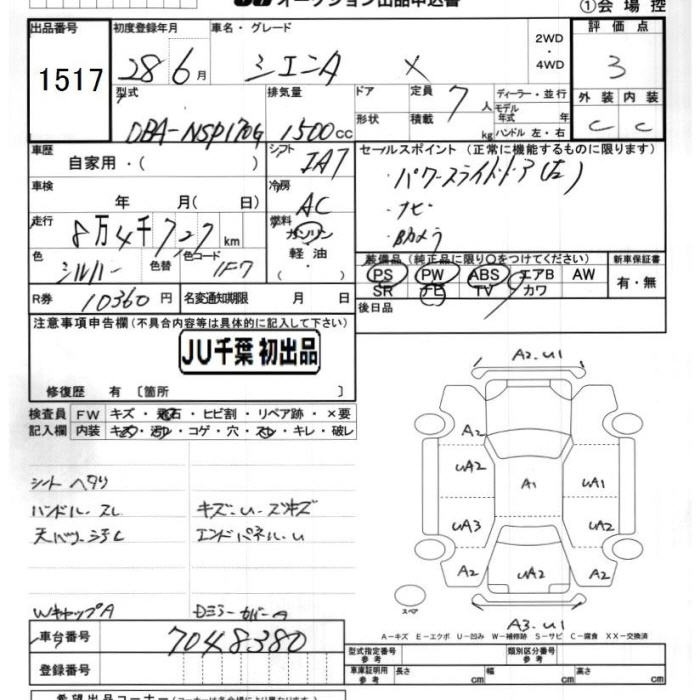 オークション出品申込書
①会場控
出品番号
1517
初度登録年月
28 6月
車名・グレード
シエンタ X
2WD
・
4WD
評価点
3
型式
DBA-NSP170G
排気量
1500cc
ドア
形状
定員 7人
積載 kg
ディーラー・並行
モデル年式 年式
ハンドル 左・右
外装 内装
C C
車歴
自家用・( )
シフト IA7
セールスポイント (正常に機能するものに限ります)
・パワースライドドア(左)
・ナビ
・Bカメラ
車検
年 月( 日)
冷房 AC
走行
8万4千727km
燃料
ガソリン
軽油
・
色
シルバー
色替
色コード
1F7
装備品 (純正品に限り○をつけてください)
PS PW ABS エアB AW
SR ナビ TV カワ
新車保証書
有・無
R券 10360円
名変通知期限 月 日
後日品
注意事項申告欄 (不具合内容等は具体的に記入して下さい)
JU千葉 初出品
修復歴 有 〔箇所 〕
検査員 FW キズ・飛石・ヒビ割・リペア跡・×要
記入欄 内装 キズ・汚レ・コゲ・穴・スレ・キレ・破レ
シート ヘタリ
ハンドル・スレ
キズ・U・ズキズ
エンドパネル・U
WキャップA
Dミラーカバー A
A2.U1
A2
UA2
UA3
A2
A1
UA2
UA1
UA2
A2
スペア
A3.U1
A-キズ E-エクボ U-凹み W-補修跡 S-サビ C-腐食 XX-交換済
車台番号 7048380
登録番号
型式指定番号 参考
類別区分番号 参考
車庫証明用 参考
長さ cm 幅 cm 高さ cm
希望出品コーナー